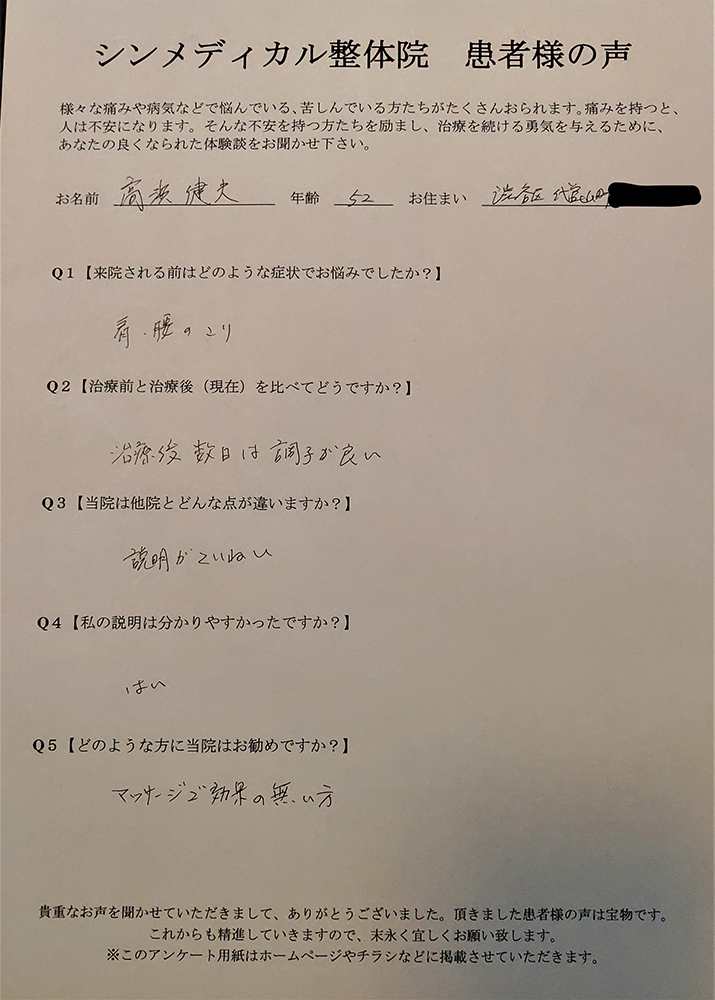 シンメディカル整体院 患者様の声
様々な痛みや病気などで悩んでいる、苦しんでいる方たちがたくさんおられます。痛みを持つと、
人は不安になります。そんな不安を持つ方たちを励まし、治療を続ける勇気を与えるために、
あなたの良くなられた体験談をお聞かせ下さい。
お名前 高浜 健夫 年齢 52 お住まい 渋谷区 代官山町
Q1【来院される前はどのような症状でお悩みでしたか？】
肩・腰のこり
Q2【治療前と治療後（現在）を比べてどうですか？】
治療後 数日は 調子が良い
Q3【当院は他院とどんな点が違いますか？】
説明がていねい
Q4【私の説明は分かりやすかったですか？】
はい
Q5【どのような方に当院はお勧めですか？】
マッサージで効果の無い方
貴重なお声を聞かせていただきまして、ありがとうございました。頂きました患者様の声は宝物です。
これからも精進していきますので、末永く宜しくお願い致します。
※このアンケート用紙はホームページやチラシなどに掲載させていただきます。